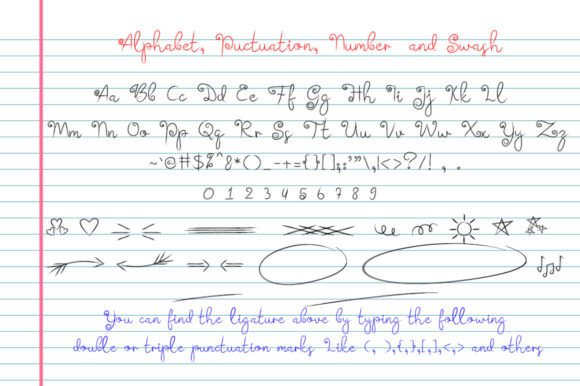 Alphabet, Puctuation, Number and Swash
Aa Bb Cc Dd Ee Ff Gg Hh Ii Jj Kk Ll
Mm Nn Oo Pp Qq Rr Ss Tt Uu Vv Ww Xx Yy Zz
~`@#$%^&*()_-+={}[];:'"\,|<>?/! , .
0 1 2 3 4 5 6 7 8 9
You can find the ligature above by typing the following
double or triple punctuation marks Like (, ),{,},[,],<,> and others